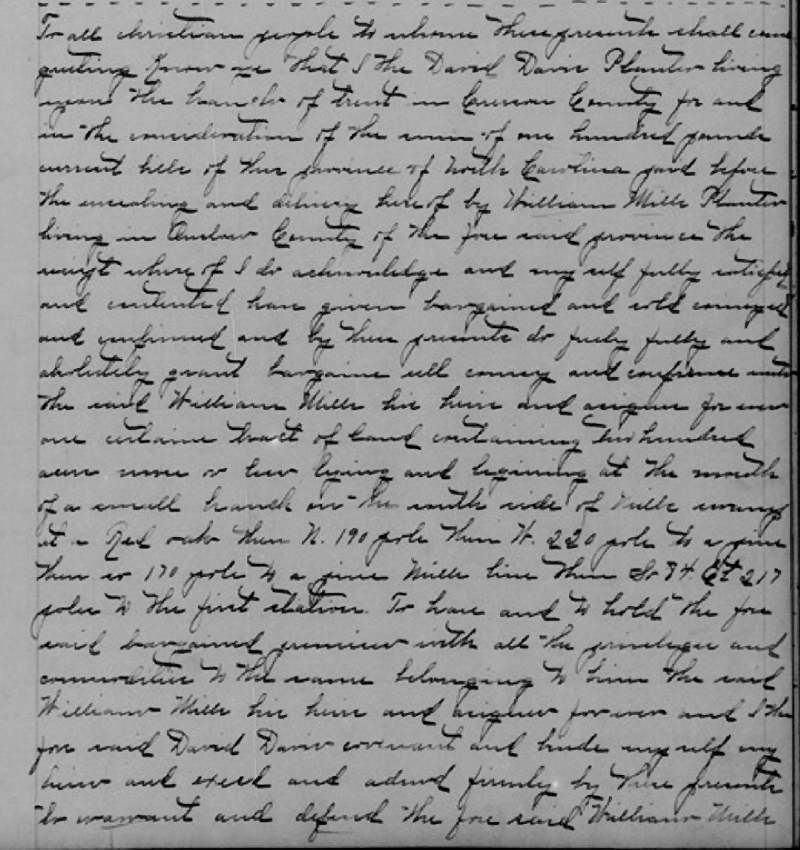 To all christian people to whome these presents shall come
greeting Know ye that I the David Davis Planter living
upon the branch of trent in Craven County for and
in the consideration of the sum of one hundred pounds
current bills of this province of North Carolina paid before
the ensealing and delivery here of by William Mills Planter
living in Onslow County of the fore said province the
receipt where of I do acknowledge and my self fully satisfied
and contented have given bargained and sold conveyed
and confirmed and by these presents do freely fully and
absolutely grant bargaine sell convey and confirme unto
the said William Mills his heirs and assigns for ever
one certaine tract of land containing two hundred
acres more or less lying and begining at the mouth
of a small branch on the south side of Mills swamp
at a Red oak then N. 190 pole then W. 220 pole to a pine
then so 170 pole to a pine Mills line then So 84 Et 217
poles to the first station. To have and to hold the fore
said bargained premises with all the privelege and
comodities to the same belonging to him the said
William Mills his heirs and assignes for ever and I the
fore said David Davis covenant and binde my self my
heirs and exerd and admd firmly by these presents
to warrant and defend the fore said William Mills